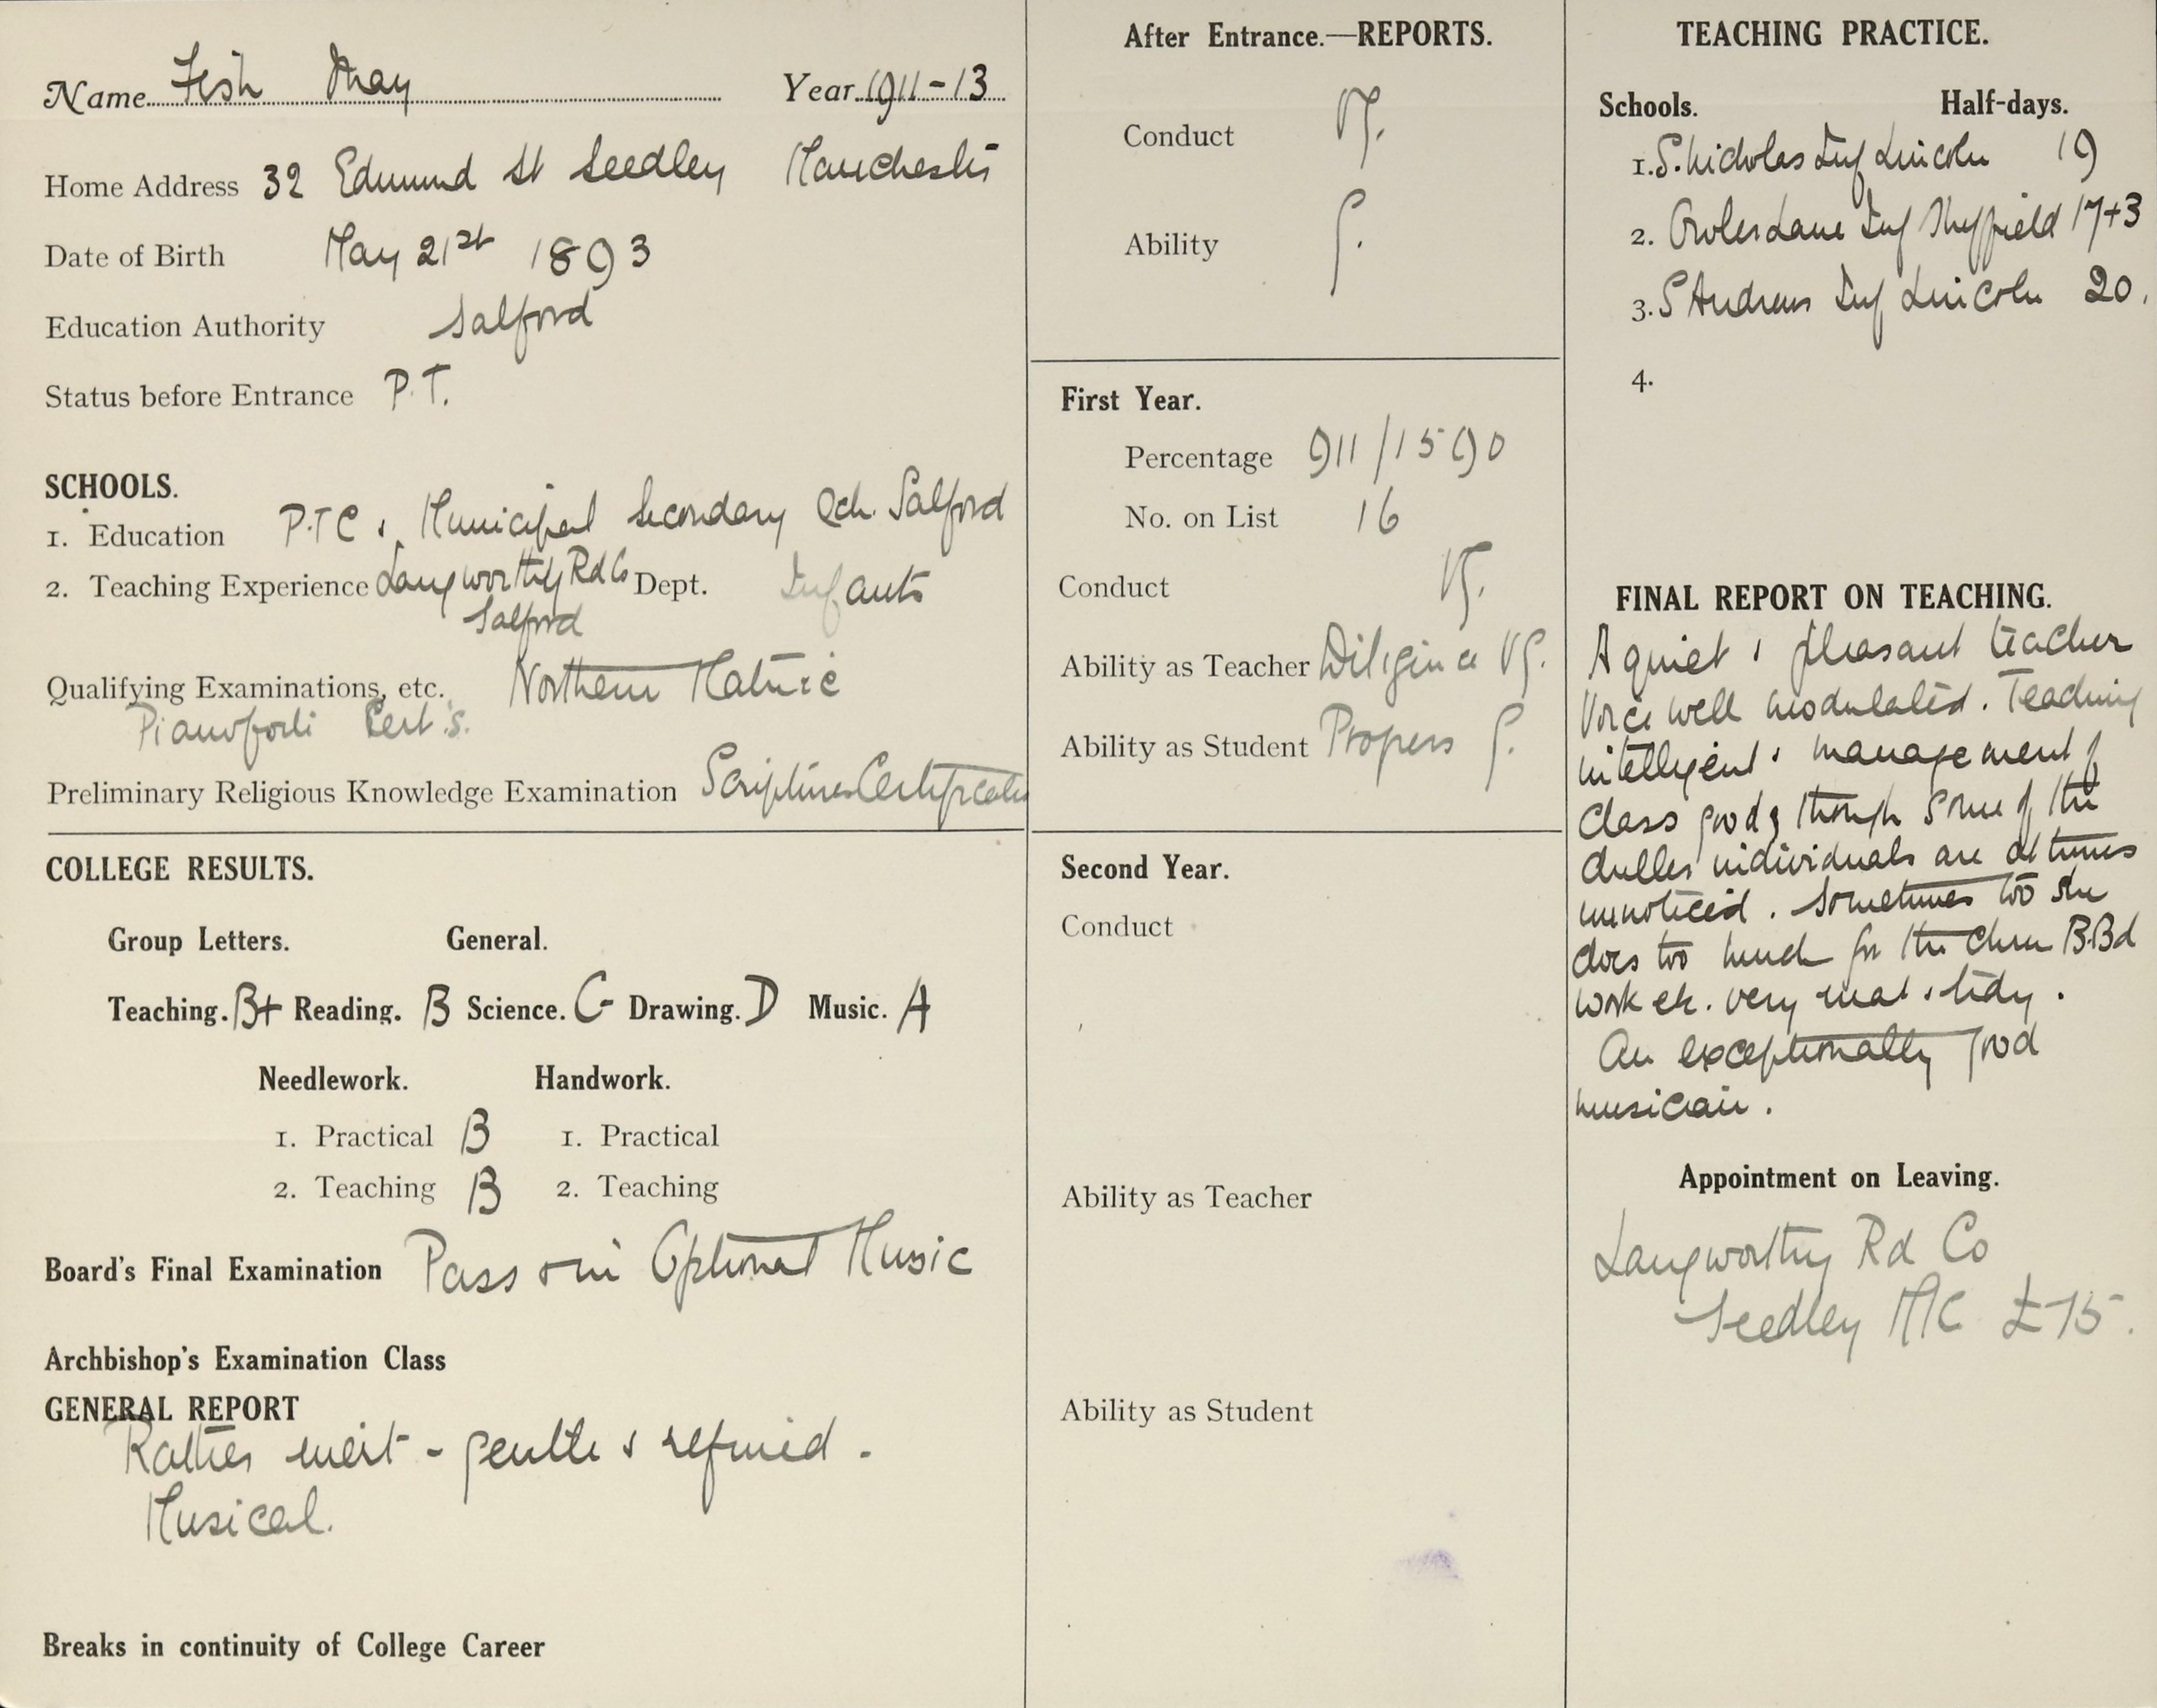 Name Fish May Year 1911-13
Home Address 32 Edmund St Seedley Manchester
Date of Birth May 21st 1893
Education Authority Salford
Status before Entrance P.T.
SCHOOLS.
1. Education P.T.C & Municipal Secondary Sch. Salford
2. Teaching Experience Langworthy Rd Co Dept. Infants
Salford
Qualifying Examinations, etc. Northern Matric
Pianoforte Cert's.
Preliminary Religious Knowledge Examination Scripture Certificates
COLLEGE RESULTS.
Group Letters. General.
Teaching. B+ Reading. B Science. C- Drawing. D Music. A
Needlework. Handwork.
1. Practical B 1. Practical
2. Teaching B 2. Teaching
Board's Final Examination Pass & in Optional Music
Archbishop's Examination Class
GENERAL REPORT
Rather inert - gentle & refined.
Musical.
Breaks in continuity of College Career
After Entrance.—REPORTS.
Conduct VG.
Ability G.
First Year.
Percentage 911/1590
No. on List 16
Conduct VG.
Ability as Teacher Diligence VG.
Ability as Student Progress G.
Second Year.
Conduct
Ability as Teacher
Ability as Student
TEACHING PRACTICE.
Schools. Half-days.
1. S. Nicholas Inf Lincoln 19
2. Owler Lane Inf Sheffield 17+3
3. S Andrews Inf Lincoln 20.
4.
FINAL REPORT ON TEACHING.
A quiet & pleasant teacher
Voice well modulated. Teaching
intelligent & management of
class good, though some of the
duller individuals are at times
unnoticed. Sometimes too she
does too much for the chn B.Bd
work etc. very neat & tidy.
An exceptionally good
musician.
Appointment on Leaving.
Langworthy Rd Co
Seedley MC £75.